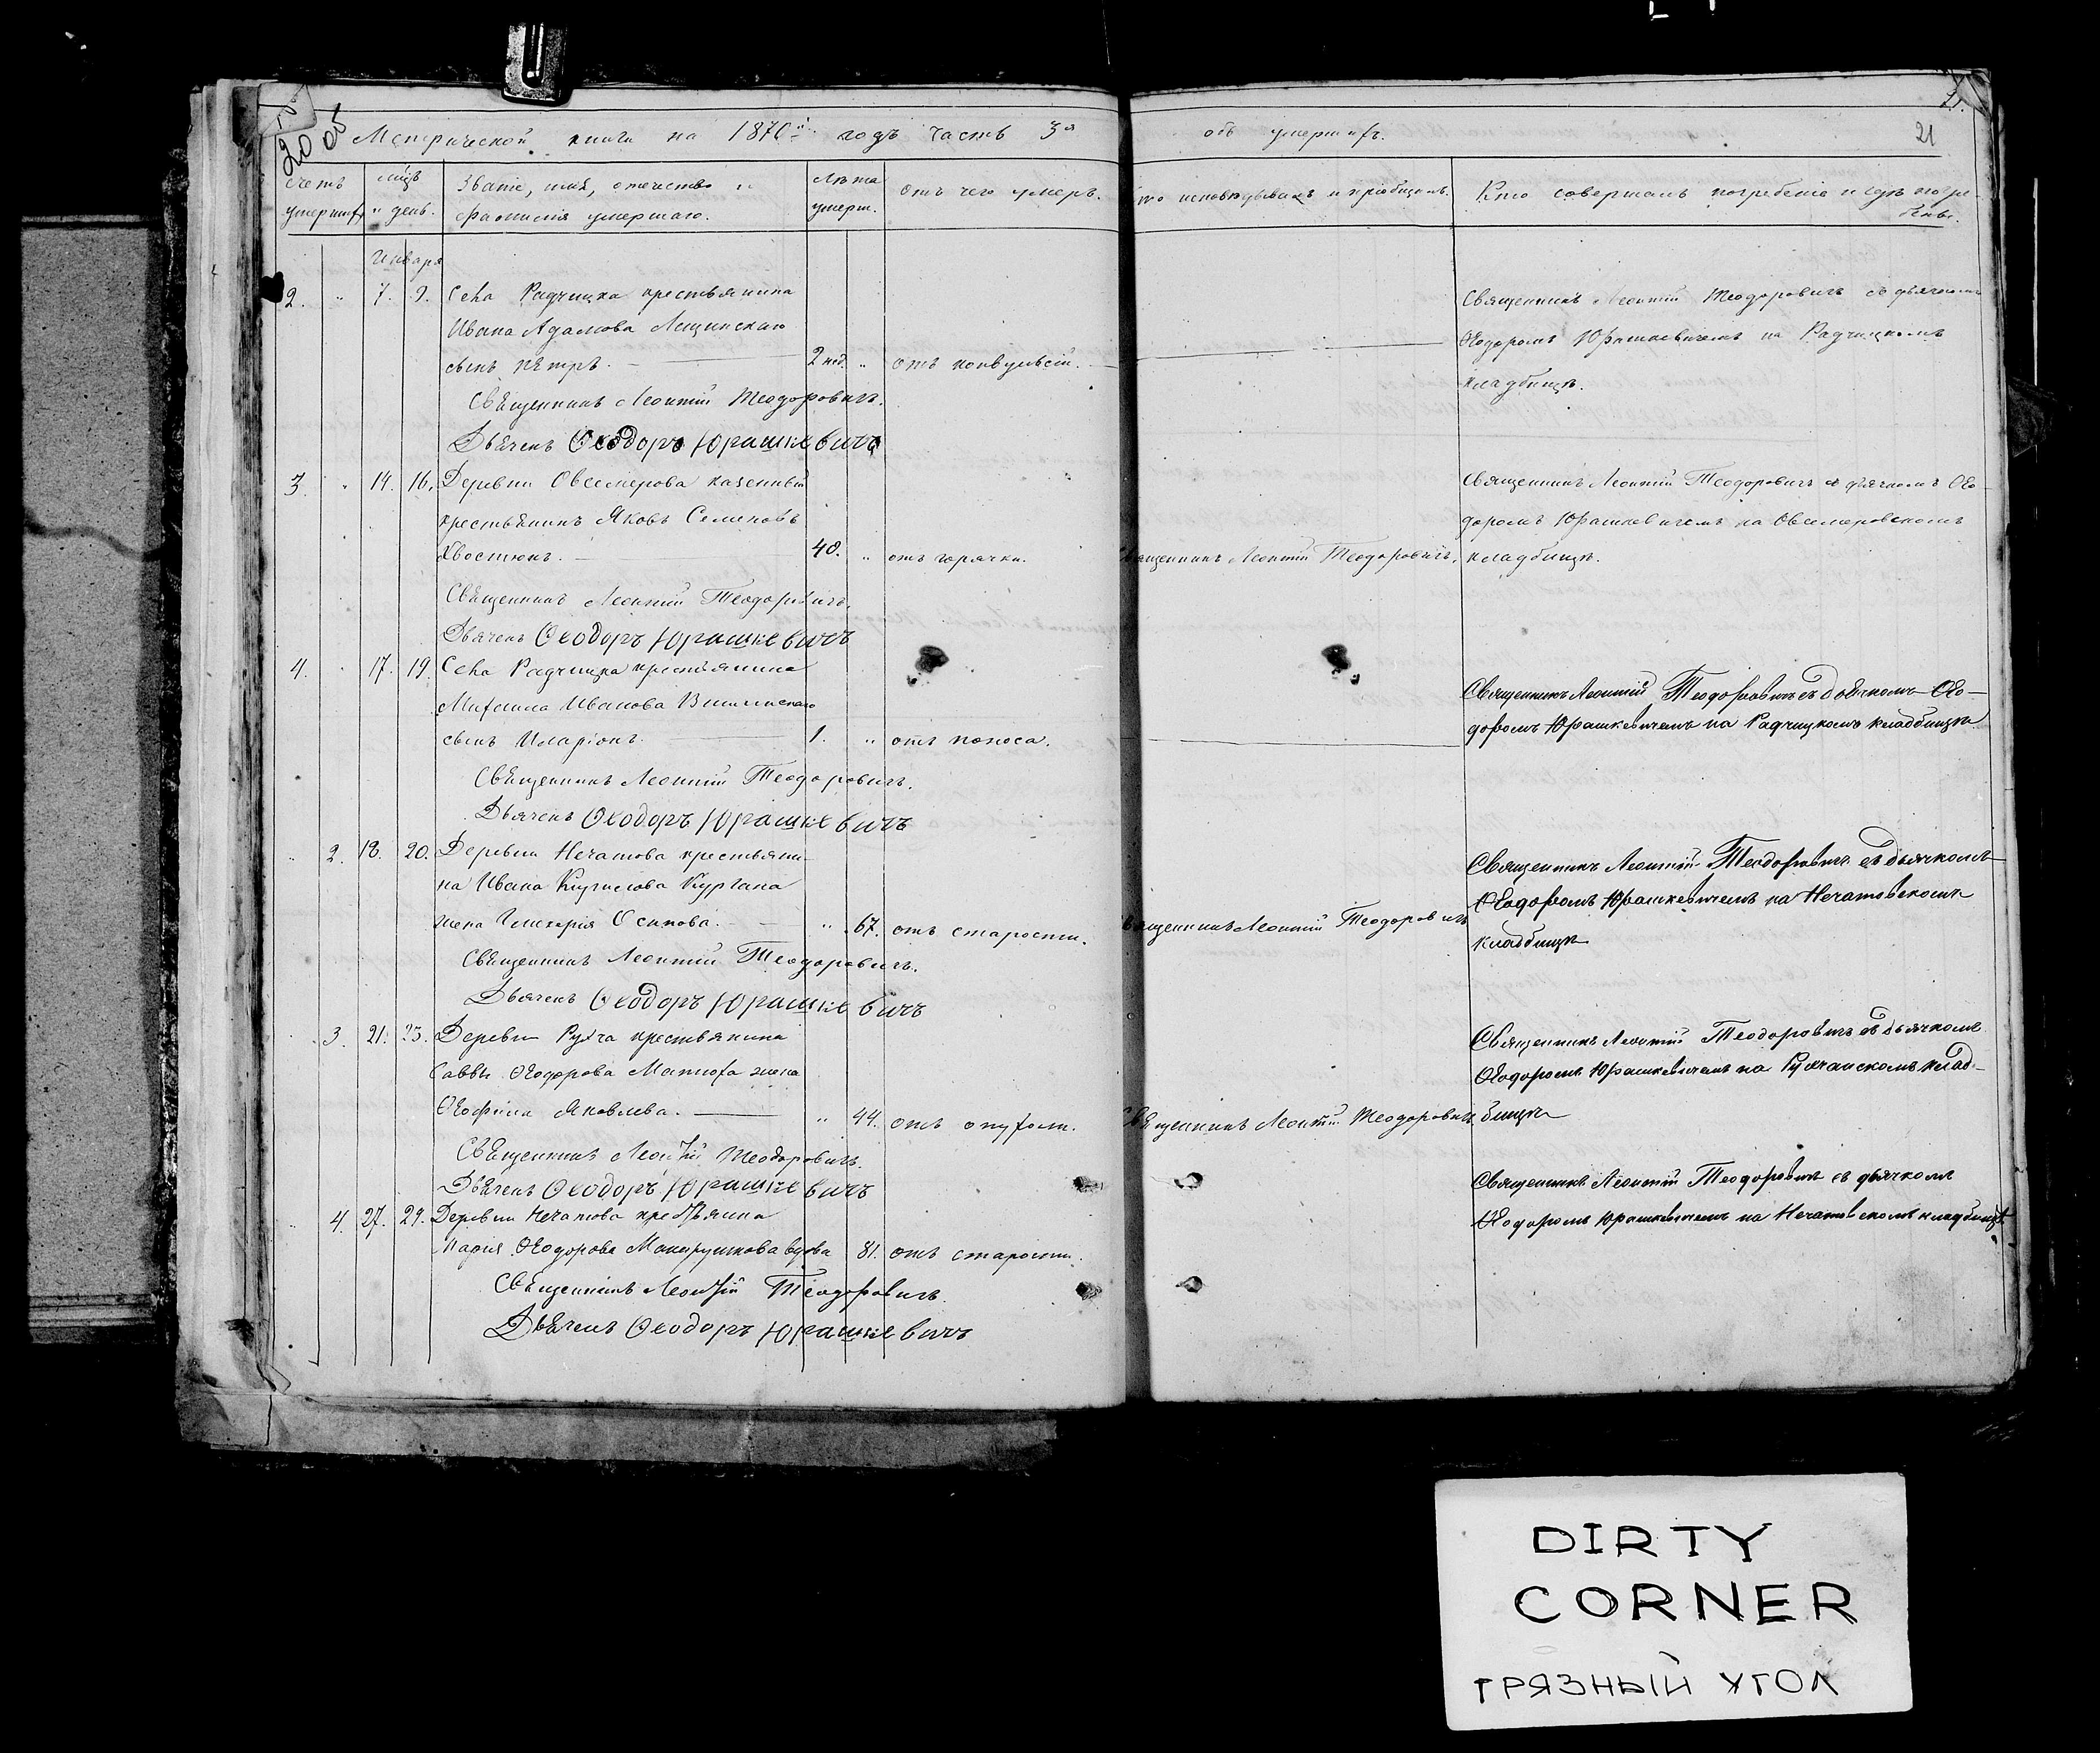 20 об
Метрической книги на 1870й годъ часть 3я
объ умершихъ.
21
Счетъ умершихъ
мѣсц. и день.
Званіе, имя, отечество и фамилія умершаго.
Лѣта умерш.
отъ чего умеръ.
Кто исповѣдывалъ и пріобщалъ.
Кто совершалъ погребеніе и гдѣ погребены.
Января
2. " 7. 9. Села Радчицка крестьянина
Ивана Адамова Лещинскаго
сынъ Петръ. — 2 нед. " отъ конвульсій.
Священникъ Леонтій Теодоровичъ.
Дьячекъ Ѳеодоръ Юрашкевичъ
Священникъ Леонтій Теодоровичъ съ дьячкомъ
Ѳеодоромъ Юрашкевичемъ на Радчицкомъ
кладбищѣ.
3. " 14. 16. Деревни Овсемерова казенный
крестьянинъ Яковъ Семеновъ
Хвостюкъ. — 40. " отъ горячки.
Священникъ Леонтій Теодоровичъ.
Дьячекъ Ѳеодоръ Юрашкевичъ
Священникъ Леонтій Теодоровичъ.
Священникъ Леонтій Теодоровичъ съ дьячкомъ Ѳео-
доромъ Юрашкевичемъ на Овсемеровскомъ
кладбищѣ.
4. " 17. 19. Села Радчицка крестьянина
Михаила Иванова
сынъ Иларіонъ. — 1. " отъ поноса.
Священникъ Леонтій Теодоровичъ.
Дьячекъ Ѳеодоръ Юрашкевичъ
Священникъ Леонтій Теодоровичъ съ дьячкомъ Ѳео-
доромъ Юрашкевичемъ на Радчицкомъ кладбищѣ
" 2. 18. 20. Деревни Нечатова крестьяни-
на Ивана Кирилова Кургана
жена Гликерія Осипова. — " 67. отъ старости.
Священникъ Леонтій Теодоровичъ.
Дьячекъ Ѳеодоръ Юрашкевичъ
Священникъ Леонтій Теодоровичъ
Священникъ Леонтій Теодоровичъ съ дьячкомъ
Ѳеодоромъ Юрашкевичемъ на Нечатовскомъ
кладбищѣ
" 3. 21. 23. Деревни Рухча крестьянина
Саввы Ѳеодорова Матюха жена
Яковлева. — " 44. отъ опухоли.
Священникъ Леонтій Теодоровичъ.
Дьячекъ Ѳеодоръ Юрашкевичъ
Священникъ Леонтій Теодоровичъ
Священникъ Леонтій Теодоровичъ съ дьячкомъ
Ѳеодоромъ Юрашкевичемъ на Рухчанскомъ клад-
бищѣ
" 4. 27. 29. Деревни Нечатова крестьянина
Марія Ѳеодорова вдова 81. отъ старости.
Священникъ Леонтій Теодоровичъ.
Дьячекъ Ѳеодоръ Юрашкевичъ
Священникъ Леонтій Теодоровичъ съ дьячкомъ
Ѳеодоромъ Юрашкевичемъ на Нечатовскомъ кладбищѣ.
DIRTY
CORNER
ГРЯЗНЫЙ УГОЛ